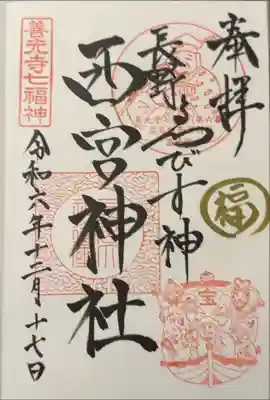 奉拝
福
長野ゑびす神
西宮神社
善光寺七福神
令和六年十二月十七日
宝